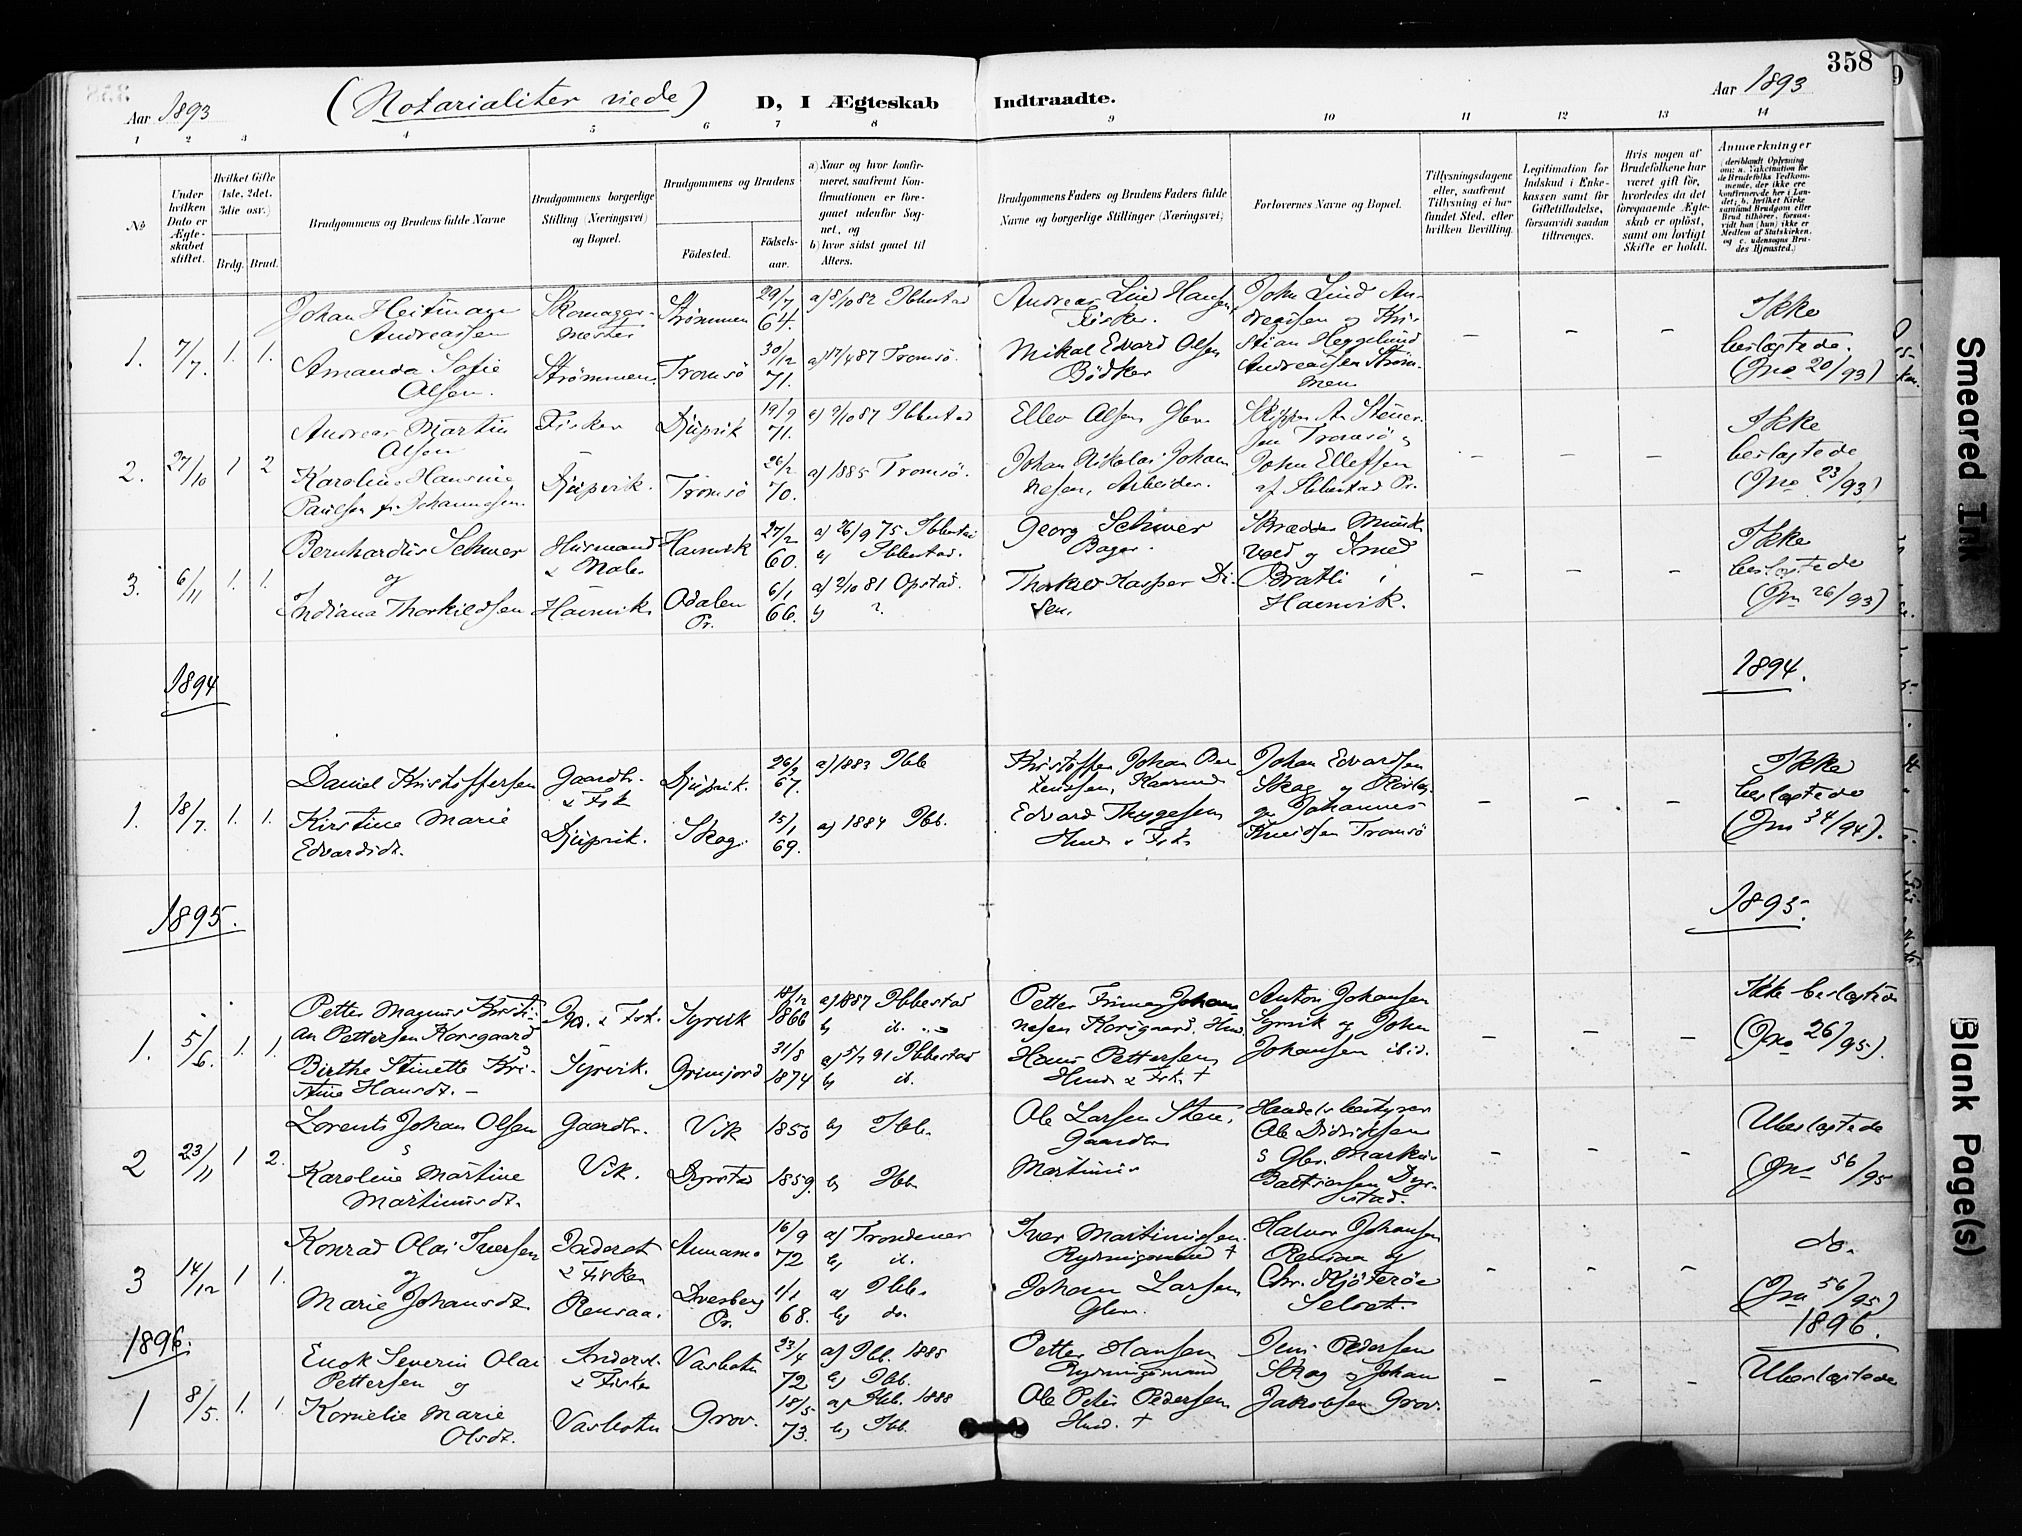 358
Aar 1893
(Notarialiter viede)
D, I Ægteskab Indtraadte.
Aar 1893
1 2 3 4 5 6 7 8 9 10 11 12 13 14
No
Under hvilken Dato er Ægteskabet stiftet.
Hvilket Gifte (1ste, 2det, 3die osv.)
Brdg. Brud.
Brudgommens og Brudens fulde Navne
Brudgommens borgerlige Stilling (Næringsvei) og Bopæl.
Brudgommens og Brudens
Fødested.
Fødsels-aar.
a) Naar og hvor konfirmeret, saafremt Konfirmationen er foregaaet udenfor Sognet, og
b) hvor sidst gaaet til Alters.
Brudgommens Faders og Brudens Faders fulde Navne og borgerlige Stillinger (Næringsvei)
Forlovernes Navne og Bopæl.
Tillysningsdagene eller, saafremt Tillysning ei har fundet Sted, efter hvilken Bevilling.
Legitimation for Indskud i Enkekassen samt for Giftetilladelse, forsaavidt saadan tiltrænges.
Hvis nogen af Brudefolkene har været gift før, hvorledes da det foregaaende Ægteskab er opløst, samt om lovligt Skifte er holdt.
Anmærkninger
1. 7/7. 1. 1.
Johan Heitmann Andreassen
Amanda Sofie Olsen.
Skomagermester
Strømmen.
Strømmen
Tromsö
29/7 64.
30/12 71.
a) 8/10 82 Ibbestad
a) 17/4 87 Tromsö.
Andreas Lind Hansen, Fisker.
Mikal Edvard Olsen Bödker
John Lind Andreassen og Kristian Heggelund Andreassen Strömmen
Ikke beslægtede.
(Jno 20/93)
2. 27/10 1 2
Andreas Martin Olsen
Karoline Hansine Paulsen f. Johannesen.
Fisker
Djupvik.
Djupvik
Tromsö
19/9 71.
26/2 70.
a) 2/10 87 Ibbestad
a) 1885 Tromsö.
Ellev Olsen Gbr.
Johan Nikolai Johannesen, Arbeider.
John Ellefsen af Ibbestad Pr.
Ikke beslægtede
(Jno 23/93)
3. 6/11 1. 1.
Bernhardus Schwer
og
Indiana Thorkildsen
Husmand & Maler
Havnvik.
Havnvik
Odalen Pr.
27/2 60.
6/1 66.
a) 26/9 75 Ibbestad
b) Ibbestad.
a) 2/10 81 Opstad.
b) ?
Georg Schwer Bager.
Thorkild Kasper Disen.
og Smed Bratli i Havnvik.
Ikke beslægtede
(Jn 26/93)
1894 1894.
1. 18/7. 1. 1.
Daniel Kristoffersen
Kirstine Marie Edvardsdt.
Gaardbr. & Fisk
Djupvik.
Djupvik.
Skog.
26/3 67.
15/1 69.
a) 1883 Ibb
a) 1884 Ibb.
Edvard Thygesen
Husm. & Fisk.
Johan Edvardsen Skog og
Johannes Tromsö
Ikke beslægtede
(Jno 34/94).
1895. 1895.
1. 5/6. 1. 1.
Petter Magnus Kristian Pettersen Korsgaard
Birthe Stinette Kristine Hansdt. –
Fisk.
Syrvik.
Syrvik
Grimjord
18/12 1866
31/8 1874
a) 1887 Ibbestad
b) ib.
a) 5/7 91 Ibbestad
b) ib.
Petter Johannesen Korsgaard. Husm.
Hans Pettersen
Husm & Fisk. †
Anton Johansen Syrvik og Johan Johansen ibid.
Ikke beslægtede
(Jno 26/95).
2 23/11 1 2.
Lorents Johan Olsen
Karoline Martine Martinusdt.
Gaardbr.
Vik.
Vik
Dyrstad
1850
1859.
b) Ibb.
b) Ibb.
Ole Larsen Steen, Gaardbr
Martinus
Handelsbestyrer Ole Didriksen
& Gbr. Markus Baltsersen Dyrstad.
Ubeslægtede
(Jno 56/95
3 14/12 1 1.
Konrad Olai Iversen
og
Marie Johansdt.
Inderst & Fisker
Rensaa.
Annamo
Dverberg Pr.
16/9 72
1/1 68.
a) Trondenes
b) ib.
a) Ibb.
b) do.
Iver Martinussen.
Rydningsmand †
Johan Larsen Gbr.
Halvor Johansen Rensaa og
Chr. Kjöteröe Selset.
do.
(Jno 56/95)
1896. 1896.
1 8/5. 1. 1.
Enok Severin Olai Pettersen og
Kornelie Marie Olsdt.
Inderst & Fisker
Vasbotn
Vasbotn
Grov.
23/4 72
18/5 73.
a) Ibb. 1888
b) Ibb.
a) Ibb. 1888
b) Ibb.
Petter Hansen
Rydningsmand
Ole Peter Pedersen
Husm. †
Jens Pedersen Skog & Johan Jakobsen Grov.
Ubeslægtede
Smeared Ink
Blank Page(s)